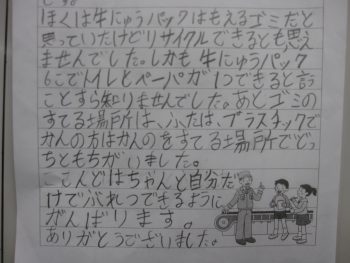 ぼくは牛にゅうパックはもえるゴミだと
思っていたけどリサイクルできるとも思え
ませんでした。しかも牛にゅうパック
6こでトイレとペーパが1つできると言う
ことすら知りませんでした。あとゴミの
すてる場戸所は、ふたは、プラスチックで
かんの方はかんのをすてる場所でどっ
ちともちがいました。
こんどはちゃんと自分だ
けでぶんれつできるように
がんばります。
ありがとうございました。